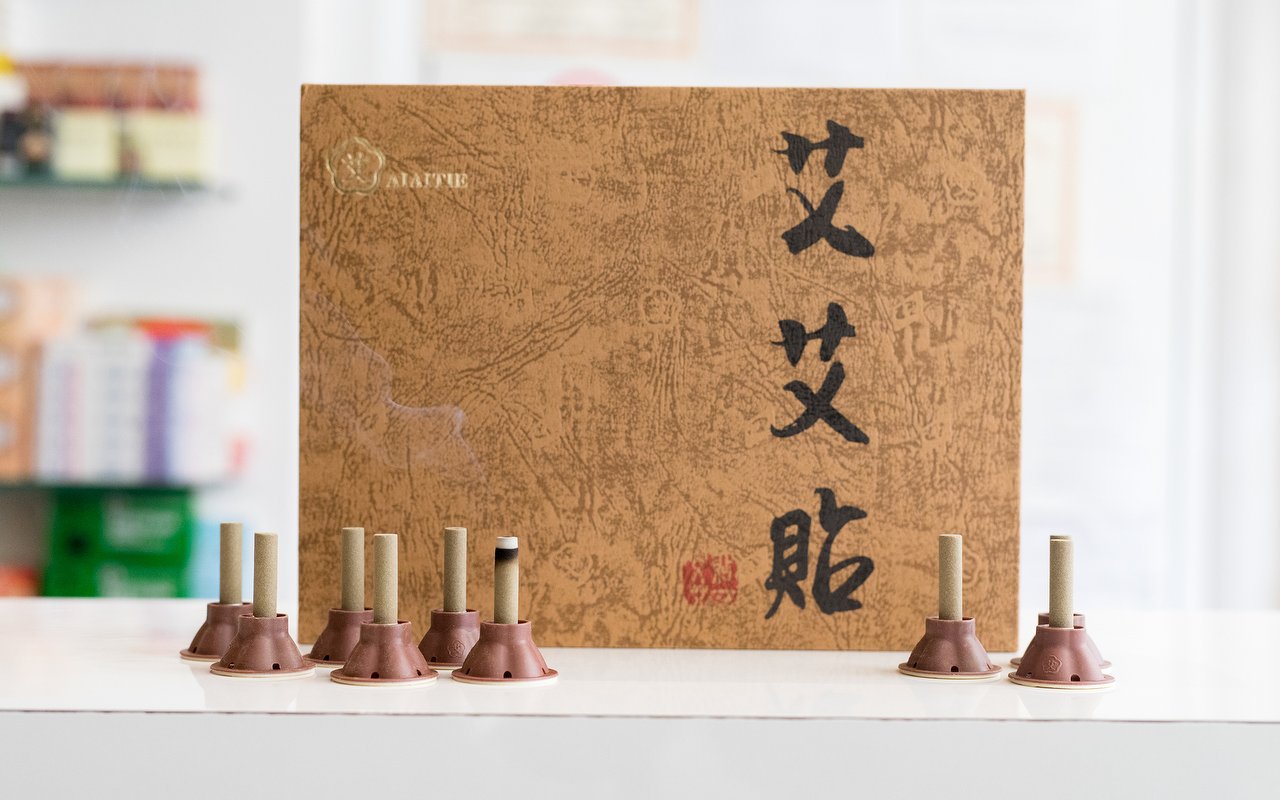 AIAITIE
艾艾貼